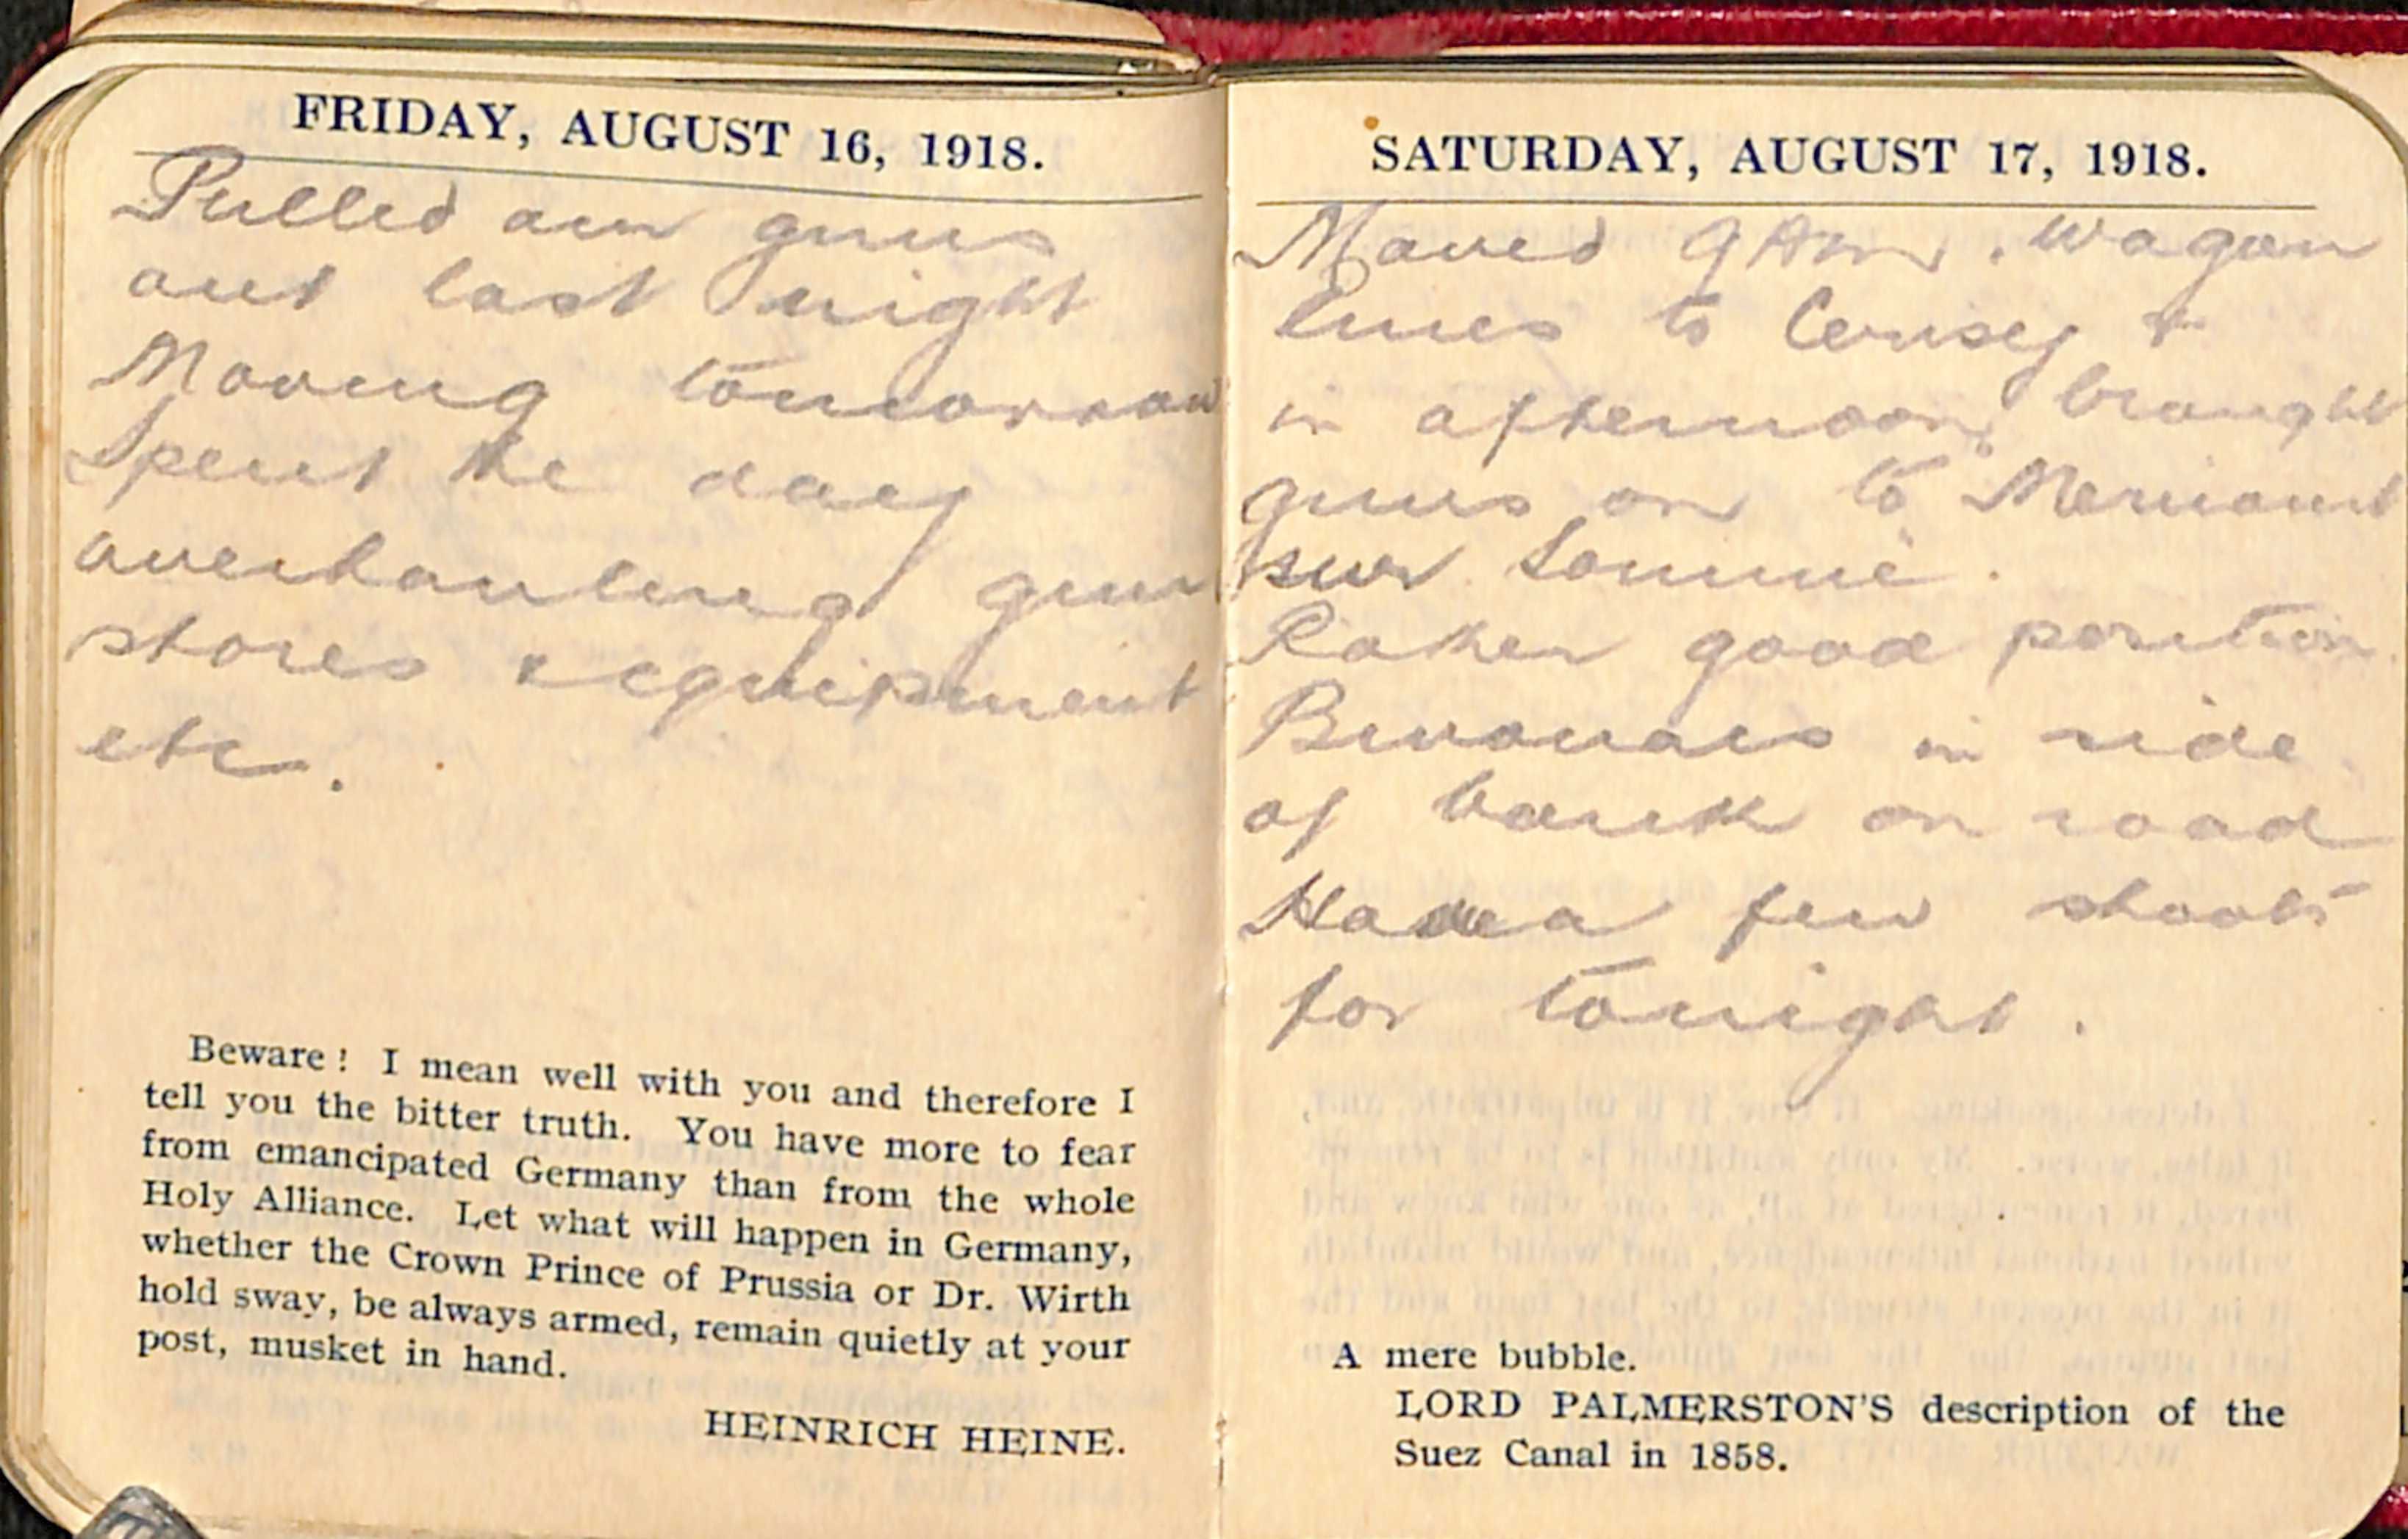 FRIDAY, AUGUST 16, 1918.
Pulled our guns
out last night
Moving tomorrow
Spent the day
overhauling gun
stores & equipment
etc.
Beware! I mean well with you and therefore I
tell you the bitter truth. You have more to fear
from emancipated Germany than from the whole
Holy Alliance. Let what will happen in Germany,
whether the Crown Prince of Prussia or Dr. Wirth
hold sway, be always armed, remain quietly at your
post, musket in hand.
HEINRICH HEINE.
SATURDAY, AUGUST 17, 1918.
Moved 9 AM. Wagon
lines to Cerisy &
in afternoon, brought
guns on to "Mericourt
sur Somme".
Rather good position
Bivouacs in side
of bank on road
Have a few shoots
for tonight.
A mere bubble.
LORD PALMERSTON'S description of the
Suez Canal in 1858.